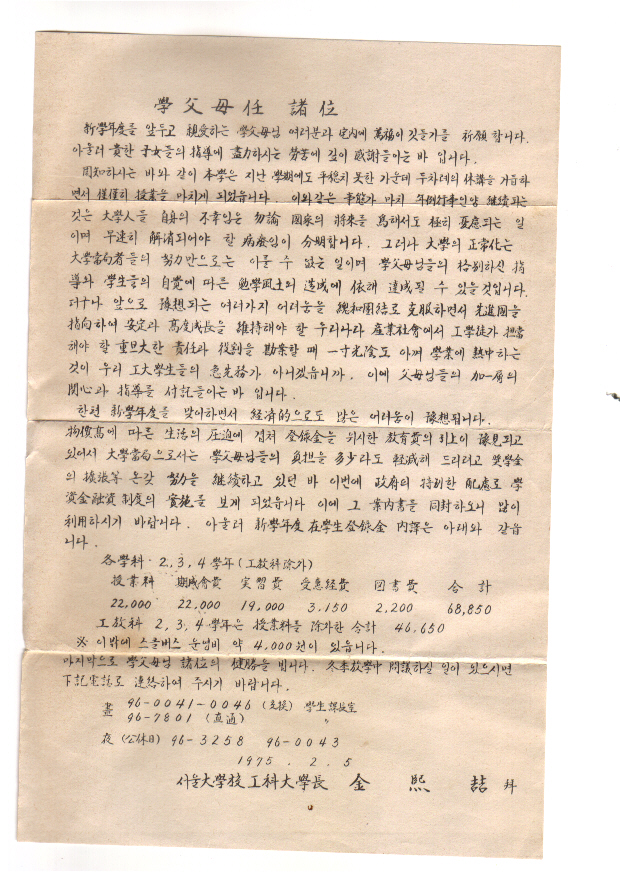 學父母任 諸位
新學年度를 앞두고 親愛하는 學父母님 여러분과 宅內에 萬福이 깃들기를 祈願합니다.
아울러 貴한 子女들의 指導에 盡力하시는 勞苦에 깊이 感謝들이는 바 입니다.
周知하시는 바와 같이 本學은 지난 學期에도 平穩치 못한 가운데 두차례의 休講을 거듭하
면서 僅僅히 授業을 마치게 되었읍니다. 이와같은 事態가 마치 年例行事인양 継続되는
것은 大學人들 自身의 不幸임은 勿論 國家의 將來를 爲해서도 極히 憂慮되는 일
이며 早速히 解消되어야 할 病廢임이 分明합니다. 그러나 大學의 正常化는
大學當局者들의 努力만으로는 이룰 수 없는 일이며 學父母님들의 格別하신 指
導와 學生들의 自覺에 따른 勉學風土의 造成에 依해 達成될 수 있을것입니다.
더구나 앞으로 豫想되는 여러가지 어려움을 總和團結로 克服하면서 先進國을
指向하여 安定과 高度成長을 維持해야 할 우리나라 産業社會에서 工學徒가 担當
해야 할 重且大한 責任과 役割을 勘案할 때 一寸光陰도 아껴 學業에 熱中하는
것이 우리 工大學生들의 急先務가 아니겠읍니까. 이에 父母님들의 加一層의
関心과 指導를 付記들이는 바 입니다.
한편 新學年度을 맞이하면서 経済的으로도 많은 어려움이 豫想됩니다.
物價高에 따른 生活의 圧迫에 겹쳐 登錄金을 위시한 教育費의 引上이 豫見되고
있어서 大學當局으로서는 學父母님들의 負担을 多少라도 軽減해 드리려고 奬學金
의 擴張等 온갖 努力을 継續하고 있던 바 이번에 政府의 特別한 配慮로 學
資金融資 制度의 實施를 보게 되었읍니다 이에 그 案內書를 同封하오니 많이
利用하시기 바랍니다. 아울러 新學年度 在學生登錄金 內譯은 아래와 같읍
니다.
各學科 2, 3, 4 學年 (工敎科除外)
授業料 期成會費 実習費 受惠経費 図書費 合計
22,000 22,000 19,000 3,150 2,200 68,850
工敎科 2, 3, 4學年은 授業料를 除外한 合計 46,650
※ 이밖에 스쿨버스 운영비 약 4,000원이 있읍니다.
마지막으로 學父母님 諸位의 健勝을 빕니다. 冬季放學中 問議하실 일이 있으시면
下記電話로 連絡하여 주시기 바랍니다.
晝 96-0041-0046 (交換) 學生課長室
96-7801 (直通) 〃
夜 (公休日) 96-3258 96-0043
1975. 2. 5
서울大學校 工科大學長 金 熙 喆 拜